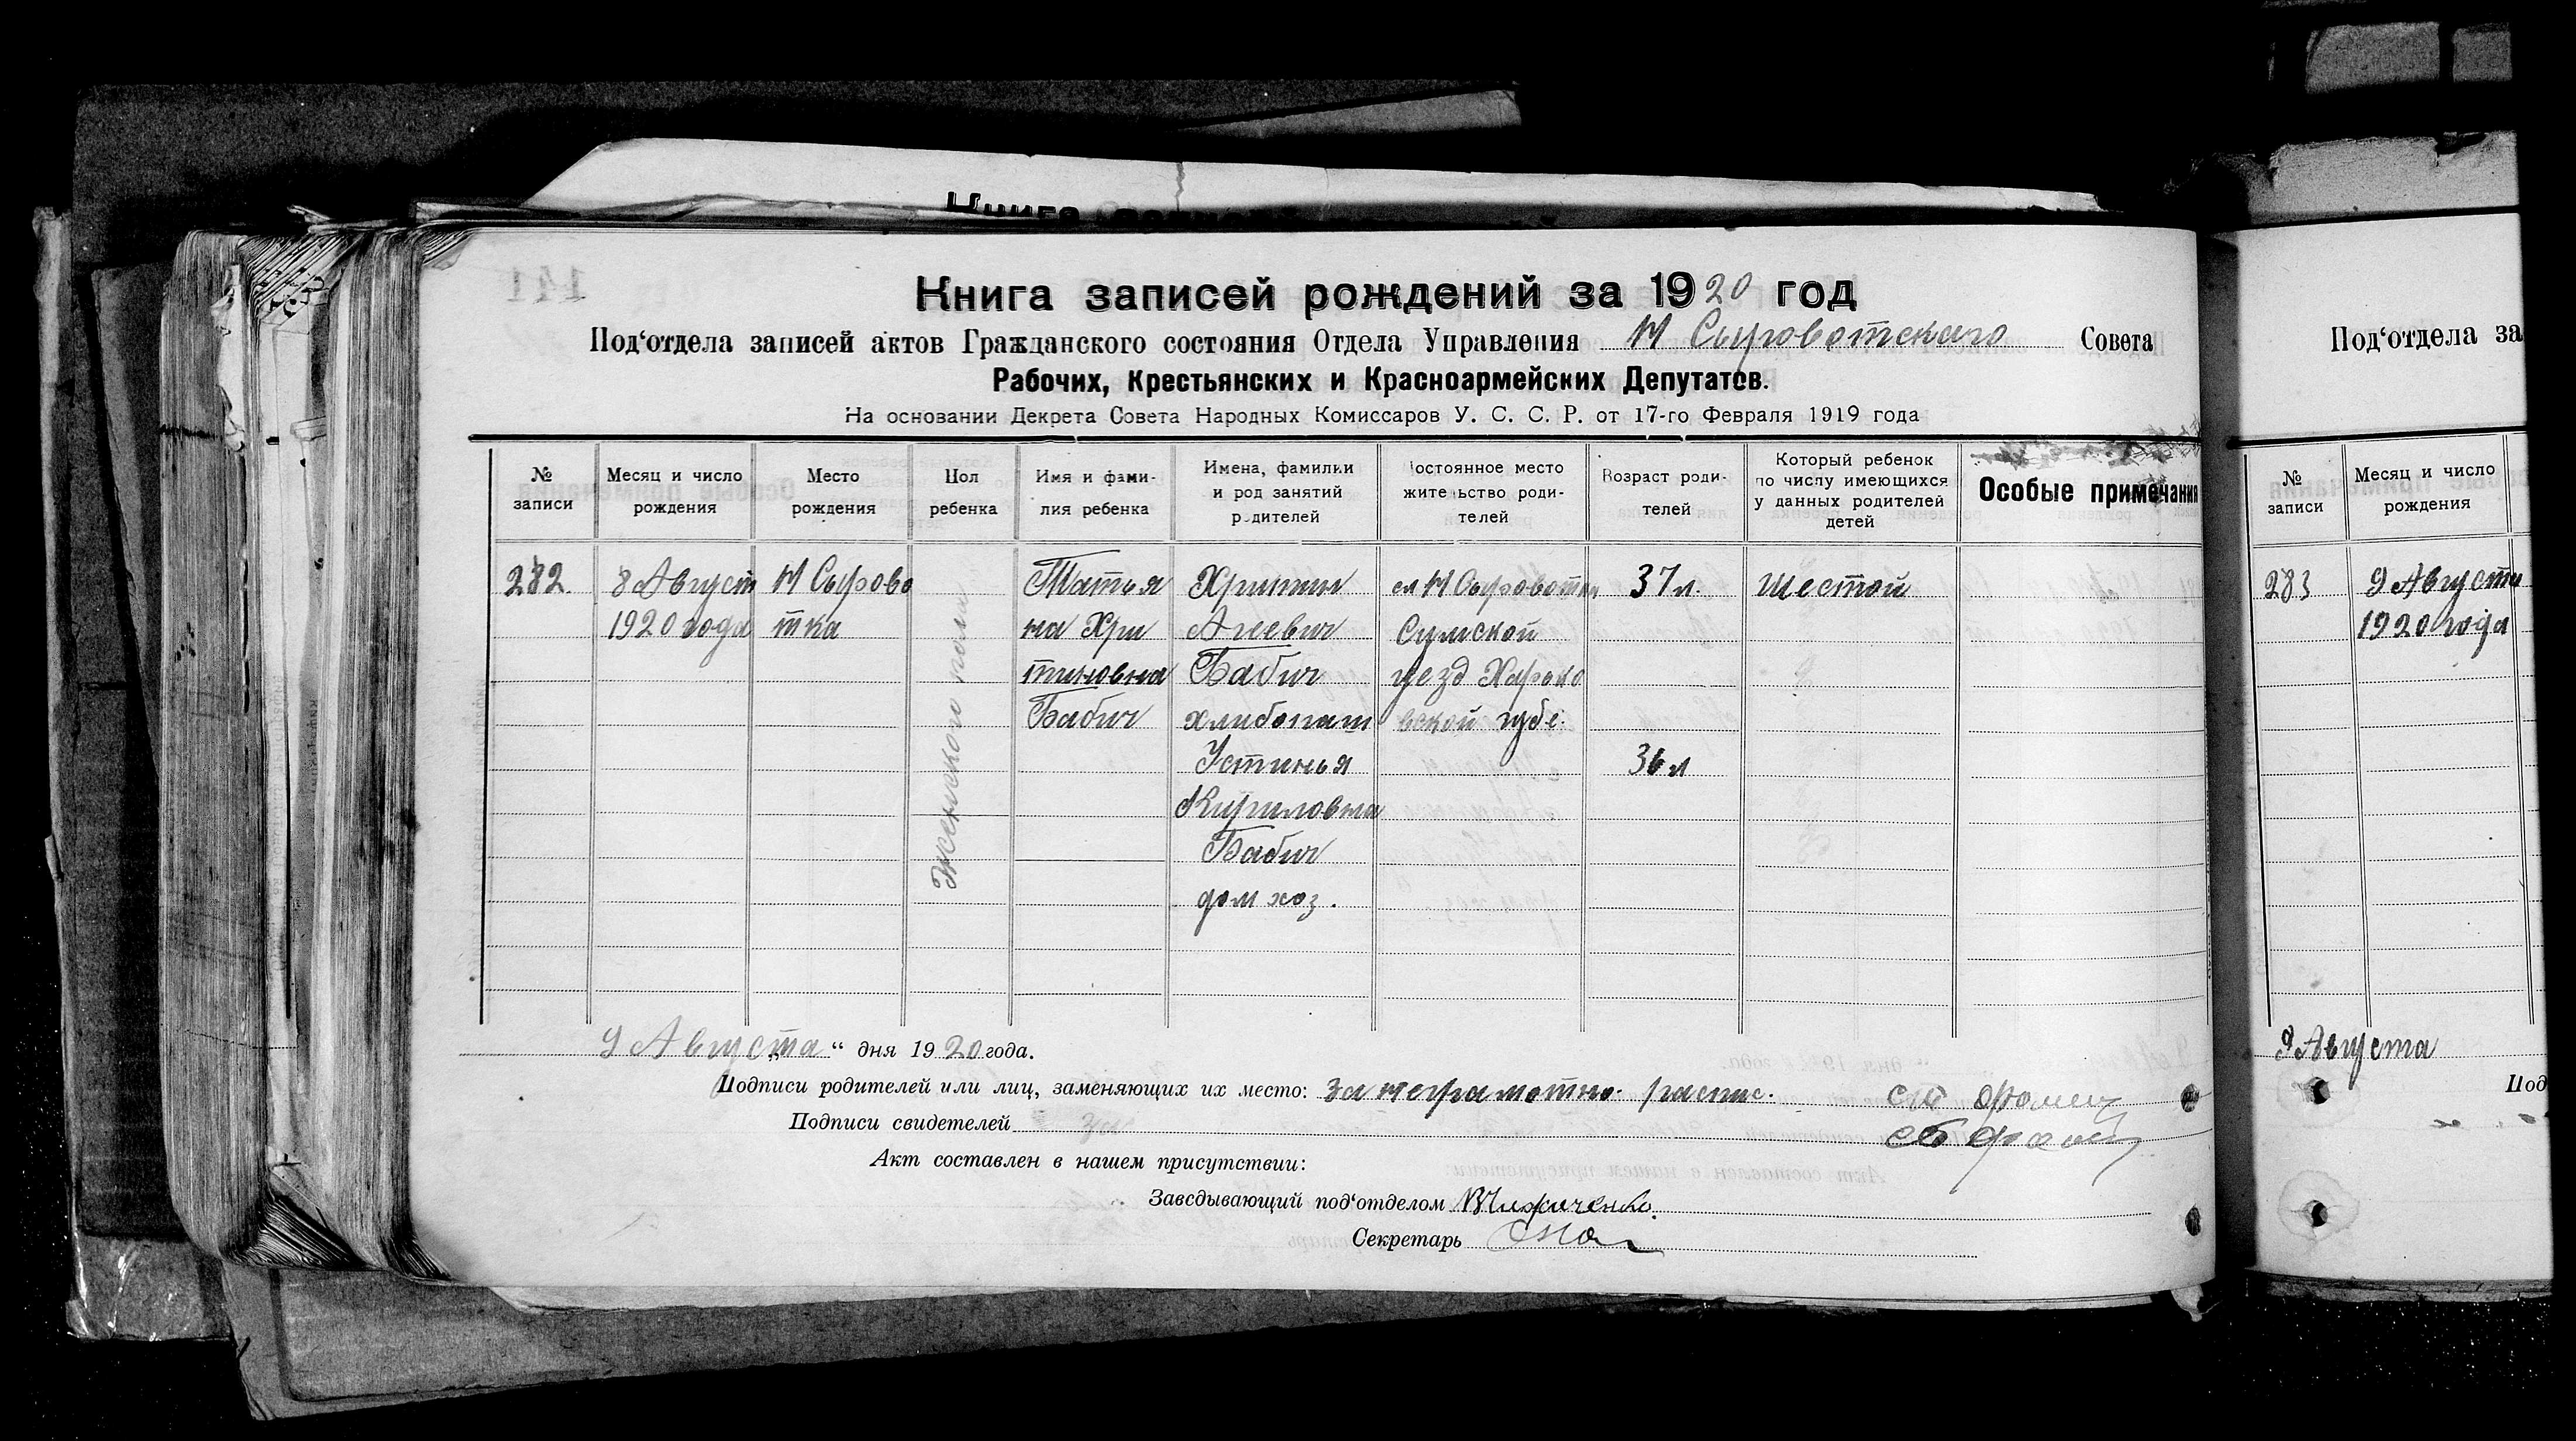 Книга записей рождений за 1920 год
Под‘отдела записей актов Гражданского состояния Отдела Управления Н Сыроватскаго Совета
Рабочих, Крестьянских и Красноармейских Депутатов.
На основании Декрета Совета Народных Комиссаров У. С. С. Р. от 17-го Февраля 1919 года
№ записи
Месяц и число рождения
Место рождения
Пол ребенка
Имя и фами-
лия ребенка
Имена, фамилии
и род занятий
родителей
Постоянное место
жительство роди-
телей
Возраст роди-
телей
Который ребенок
по числу имеющихся
у данных родителей
детей
Особые примечания
282.
8 Август
1920 года
Н Сырова
тка
Женского пола
Татья
на Хри
тиновна
Бабич
Хритин
Агеевич
Бабич
хлибопаш
Устинья
Кириловна
Бабич
дом хоз.
сл Н Сыроватки
Сумской
уезд Харько
вской губе.
37 л.
36 л
шестой
9 Августа “ дня 1920 года.
Подписи родителей или лиц, заменяющих их место: за неграмотно. распис.
Подписи свидетелей
Акт составлен в нашем присутствии:
Заведывающий под‘отделом
Секретарь
Под‘отдела за
№ записи
Месяц и число
рождения
283
9 Августа
1920 года
9 Августа
Под